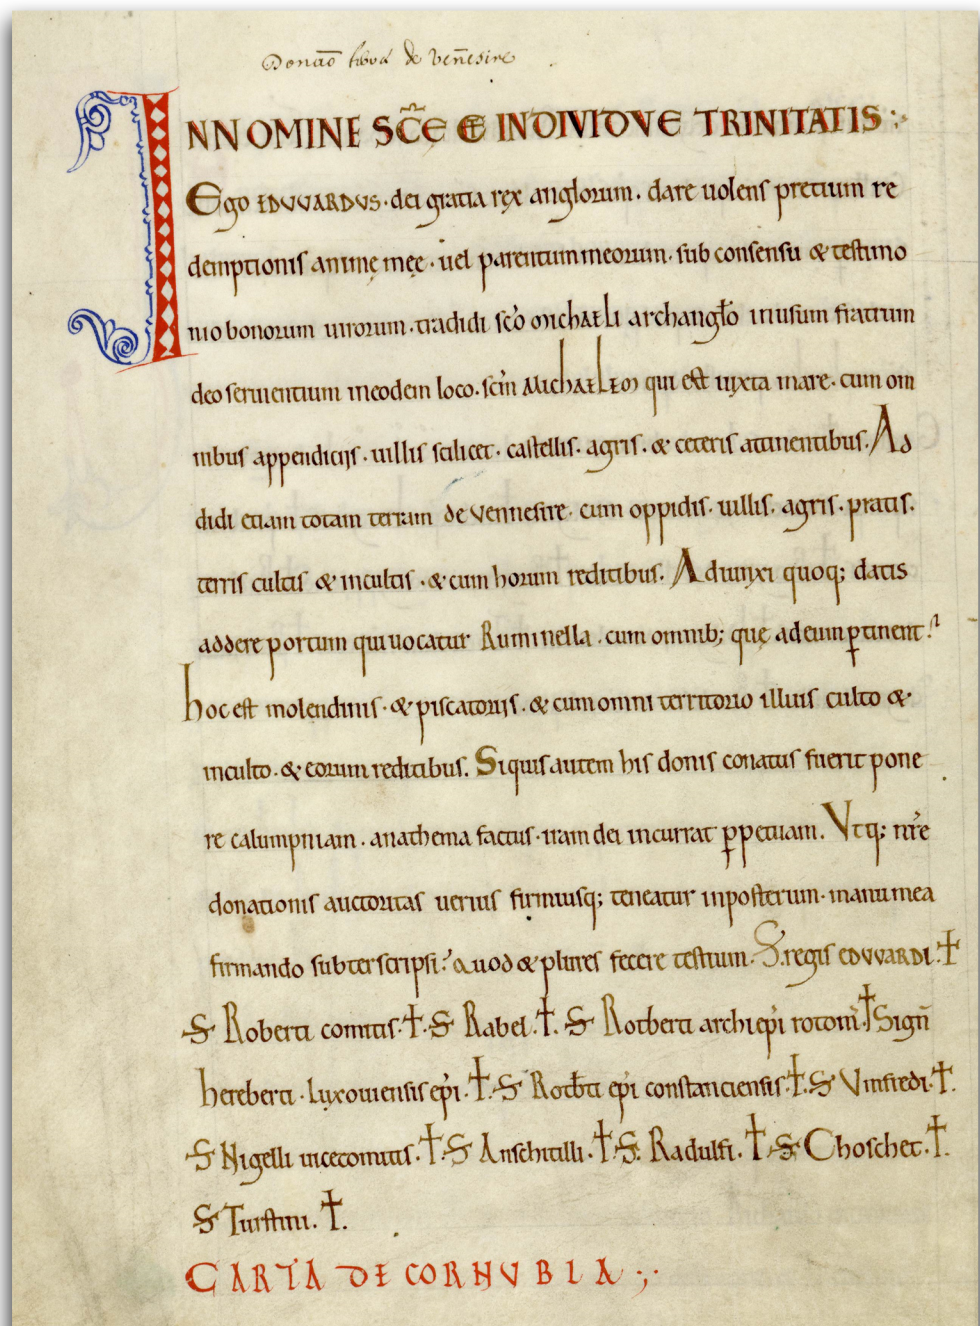 Donão de veñesire
INNOMINE SC̅E & INDIVIDVE TRINITATIS:·
Ego EDVVARDVS· dei gratia rex anglorum. dare uolens pretium re
demptionis animę męę · uel parentum meorum. sub consensu & testimo
nio bonorum uirorum. tradidi sc̅o MICHAELI archang̅lo inusum fratrum
deo seruientium ineodem loco. sc̅m MICHAELEM qui est iuxta mare. cum om
nibus appendiciis · uillis scilicet· castellis. agris. & ceteris attinentibus. Ad
didi etiam totam terram de Vennesire· cum oppidis· uillis. agris· pratis.
terris cultis & incultis · & cum horum redditibus. Adiunxi quoq; datis
addere portum qui uocatur Ruminella . cum omnib; quę ad eum ꝑtinent.
hoc est molendinis · & piscatoriis . & cum omni territorio illius culto &
inculto · & eorum redditibus. Siquis autem his donis conatus fuerit pone
re calumpniam . anathema factus · iram dei incurrat ꝑpetuam. Vtq; nr̅e
donationis auctoritas uerius firmiusq; teneatur inposterum· manu mea
firmando subterscripsi. quod & plures fecere testium. S. regis EDVVARDI. ✝
S Roberti comitis. ✝. S Rabel. ✝. S Rotberti archiep̅i rotom̅. ✝ Sign̅
hereberti . luxouiensis ep̅i . ✝. S Rotb̅ti ep̅i constanciensis ✝. S Vinfredi. ✝.
S Nigelli uicecomitis. ✝. S Anschitilli. ✝. S. Radulfi. ✝. S Choschet. ✝.
S Turstini. ✝.
CARTA DE CORNVBIA ;·